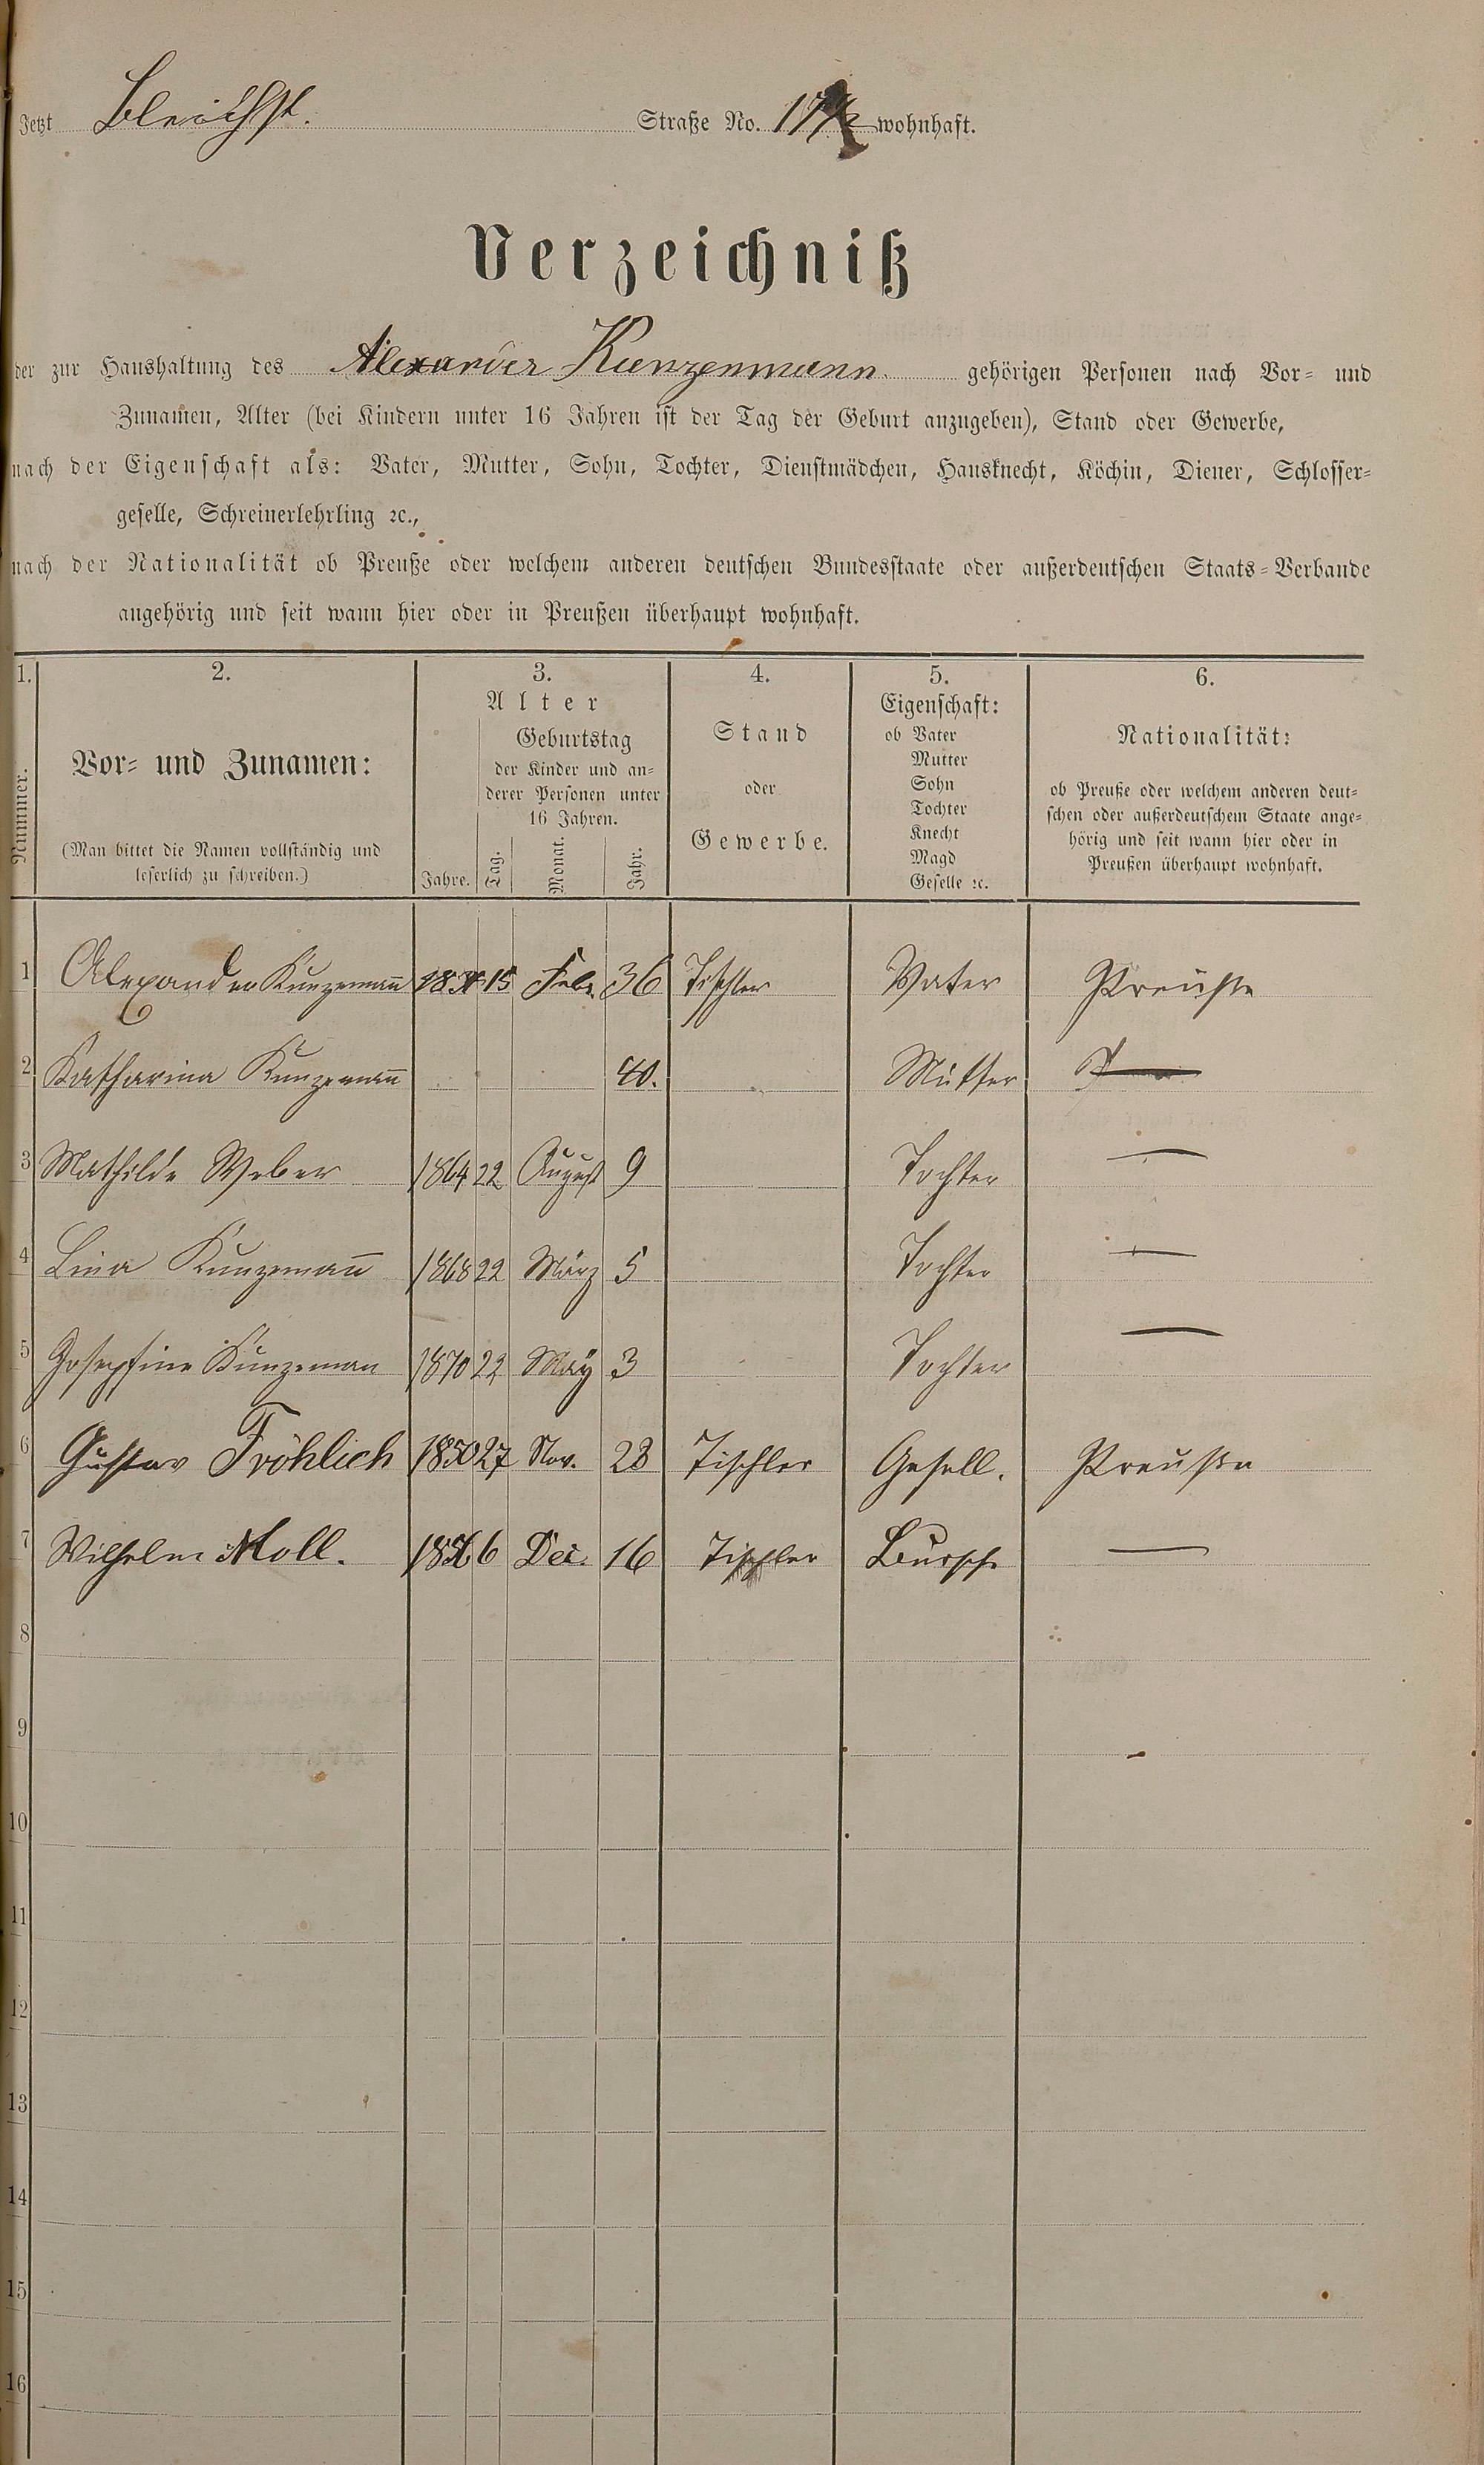 Jetzt Bleichst. Straße No. 17 wohnhaft.
Verzeichniß
der zur Haushaltung des Alexander Kunzenmann. gehörigen Personen nach Vor- und
Zunamen, Alter (bei Kindern unter 16 Jahren ist der Tag der Geburt anzugeben), Stand oder Gewerbe,
nach der Eigenschaft als: Vater, Mutter, Sohn, Tochter, Dienstmädchen, Hausknecht, Köchin, Diener, Schlosser-
geselle, Schreinerlehrling ꝛc.,
nach der Nationalität ob Preuße oder welchem anderen deutschen Bundesstaate oder außerdeutschen Staats-Verbande
angehörig und seit wann hier oder in Preußen überhaupt wohnhaft.
1. 2. 3. 4. 5. 6.
Nummer.
Vor- und Zunamen:
(Man bittet die Namen vollständig und
leserlich zu schreiben.)
Alter
Geburtstag
der Kinder und an-
derer Personen unter
16 Jahren.
Jahre. Tag. Monat. Jahr.
Stand
oder
Gewerbe.
Eigenschaft:
ob Vater
Mutter
Sohn
Tochter
Knecht
Magd
Geselle ꝛc.
Nationalität:
ob Preuße oder welchem anderen deut-
schen oder außerdeutschem Staate ange-
hörig und seit wann hier oder in
Preußen überhaupt wohnhaft.
1 Alexander Kunzemañ 15 Febr. 36 Tischler Vater Preuße
2 Katharina Kunzemañ 40. Mutter
3 Mathilde Weber 1864 22 August 9 Tochter —
4 Lina Kunzemañ 1868 22 März 5 Tochter —
5 Josephine Kunzeman 1870 22 May 3 Tochter —
6 Gustav Fröhlich 1850 27 Nov. 23 Tischler Gesell. Preuße
7 Wilhelm Moll. 1856 6 Dec. 16 Tischler Bursche —
8
9
10
11
12
13
14
15
16